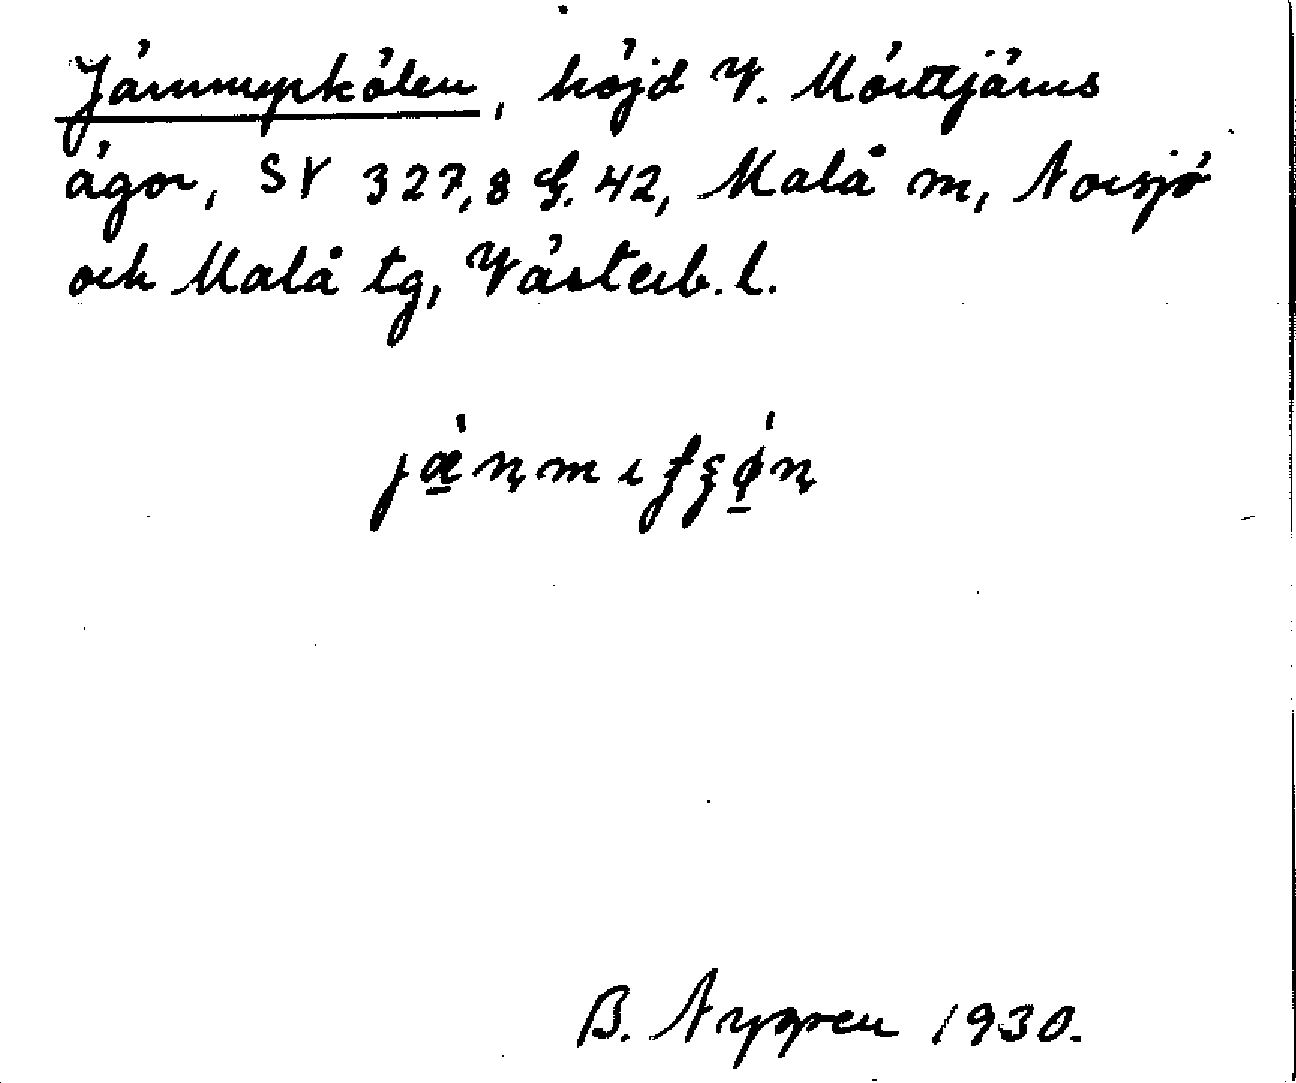 Järnmyrkölen, höjd V. Mörttjärns
ägor, SV 327,8 G. 42, Malå m, Norsjö
och Malå tg, Västerb. l.
B. Nygren 1930.